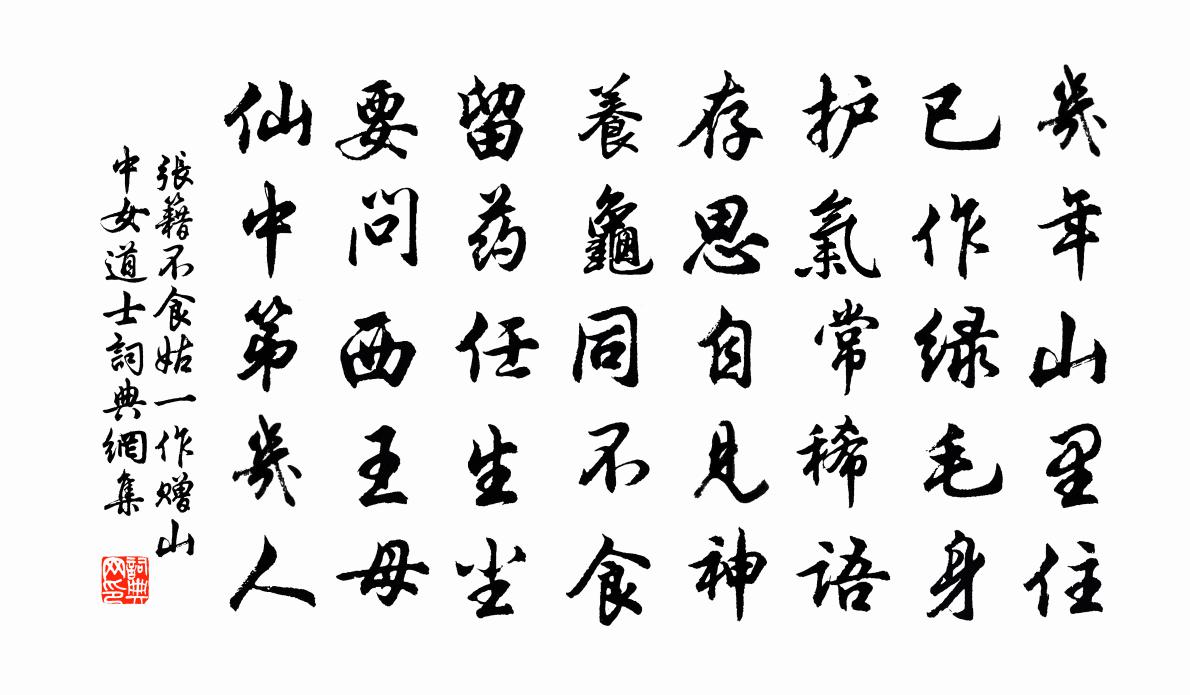 幾年山里住
已作绿毛身
护氣常稀語
存思自見神
養龜同不食
留药任生尘
要問西王母
仙中第幾人
張籍不食姑一作赠山
中女道士詞典網集
詞典
网印